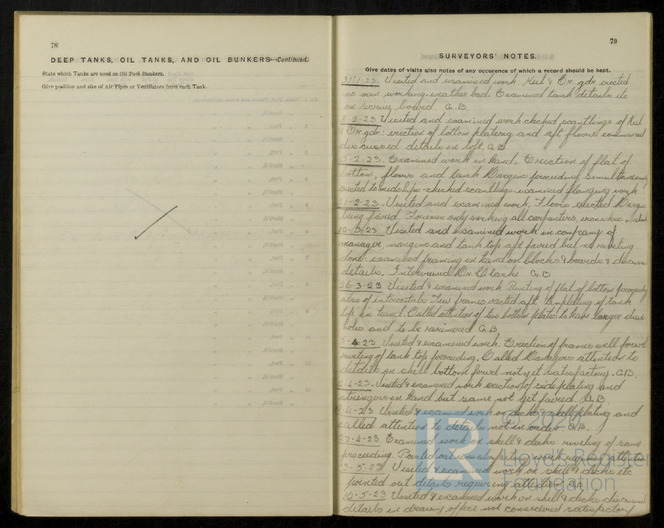 78
DEEP TANKS, OIL TANKS, AND OIL BUNKERS—Continued.
State which Tanks are used as Oil Fuel Bunkers.
Give position and size of Air Pipes or Ventilators from each Tank.
79
SURVEYORS' NOTES.
Give dates of visits also notes of any occurence of which a record should be kept.
Visited and examined work. Keel & erected
no men working weather bad. Examined tank details etc
board. G.B.
2.23 Visited and examined work checked scantlings of keel
erection of bottom plating and aft floors
discussed details in loft. G.B.
2.23. Examined work in hand. Erection of flat of
bottom, floors and tank proceeding simultaneously
checked scantlings examined flanging work
2.23. Visited and examined work. Floors erected
being faired. only working all carpenters,
Visited and examined work in company of
manager, margins and tank top aft faired but no riveting
done examined framing in hand on blocks & boards &
details. Interviewed Mr Clarke. G.B.
6.3.23 Visited & examined work Riveting of flat of bottom
also of intercostals Few frames erected aft templating of tank
top in hand. Called attention of two bottom plates to have
holes and to be reviewed G.B.
4.23 Visited & examined work. Erection of frames well forwd
riveting of tank top proceeding. Called Managers attention to
details on shell bottom forwd not yet satisfactory. G.B.
Visited & examined work erection of side plating and
stringers in hand but same not yet faired G.B
Visited & examined work on decks & shell plating and
called attention to details not in order G.B.
4.23 Examined work on shell & decks riveting of same
proceeding. work requiring attention
3.5.23 Visited & examined work on shell & decks etc
pointed out details requiring attention
10-5-23 Visited & examined work on shell & decks
details in drawing office not considered satisfactory
LR
© 2020
Lloyd's Register
Foundation